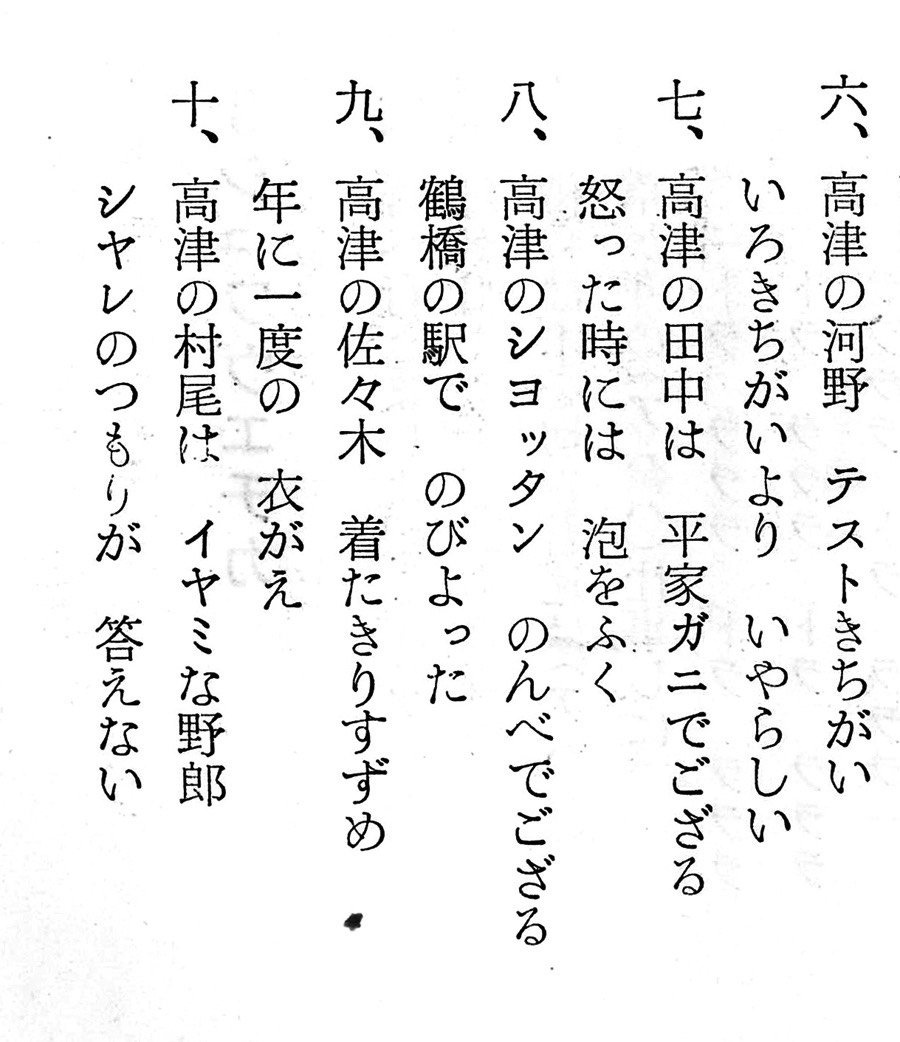 六、高津の河野　テストきちがい
いろきちがいより　いやらしい
七、高津の田中は　平家ガニでござる
怒った時には　泡をふく
八、高津のシヨッタン　のんべでござる
鶴橋の駅で　のびよった
九、高津の佐々木　着たきりすずめ
年に一度の　衣がえ
十、高津の村尾は　イヤミな野郎
シヤレのつもりが　答えない